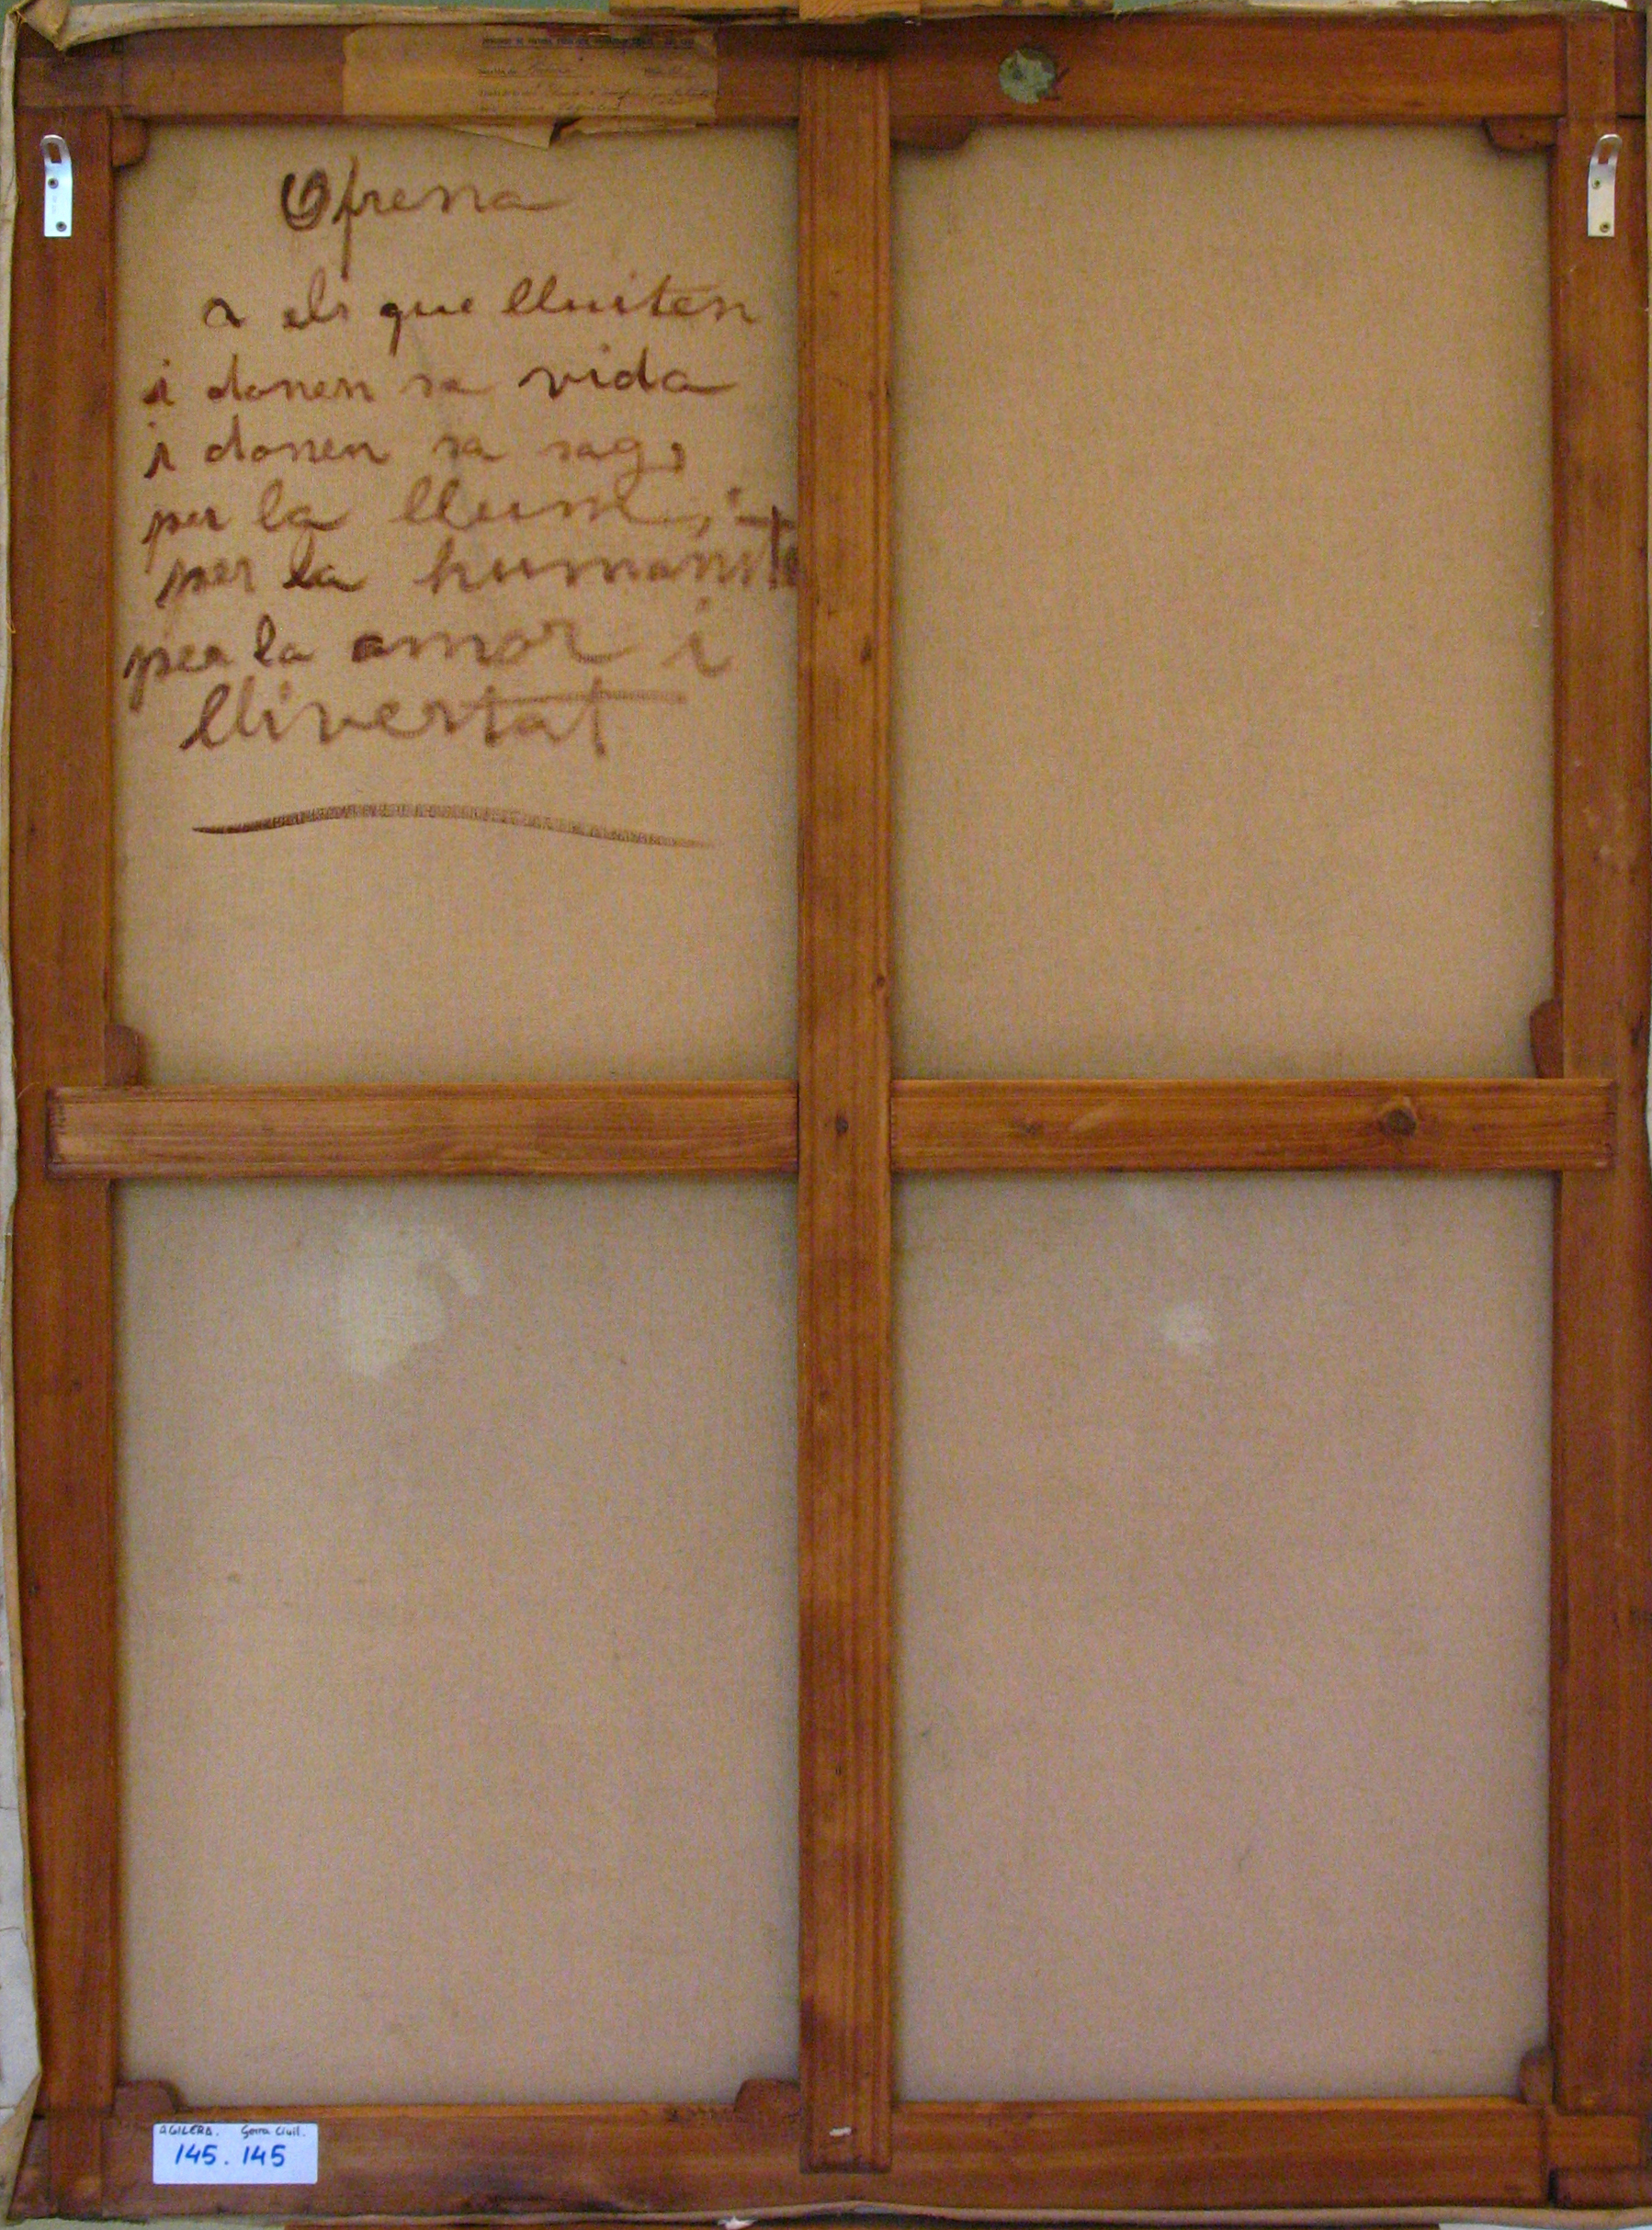 Ofrena
a els que lluiten
i donen sa vida
i donen sa sag,
per la llum, i
per la humanita
per la amor i
llivertat
AGILERA. Gerra Civil.
145. 145